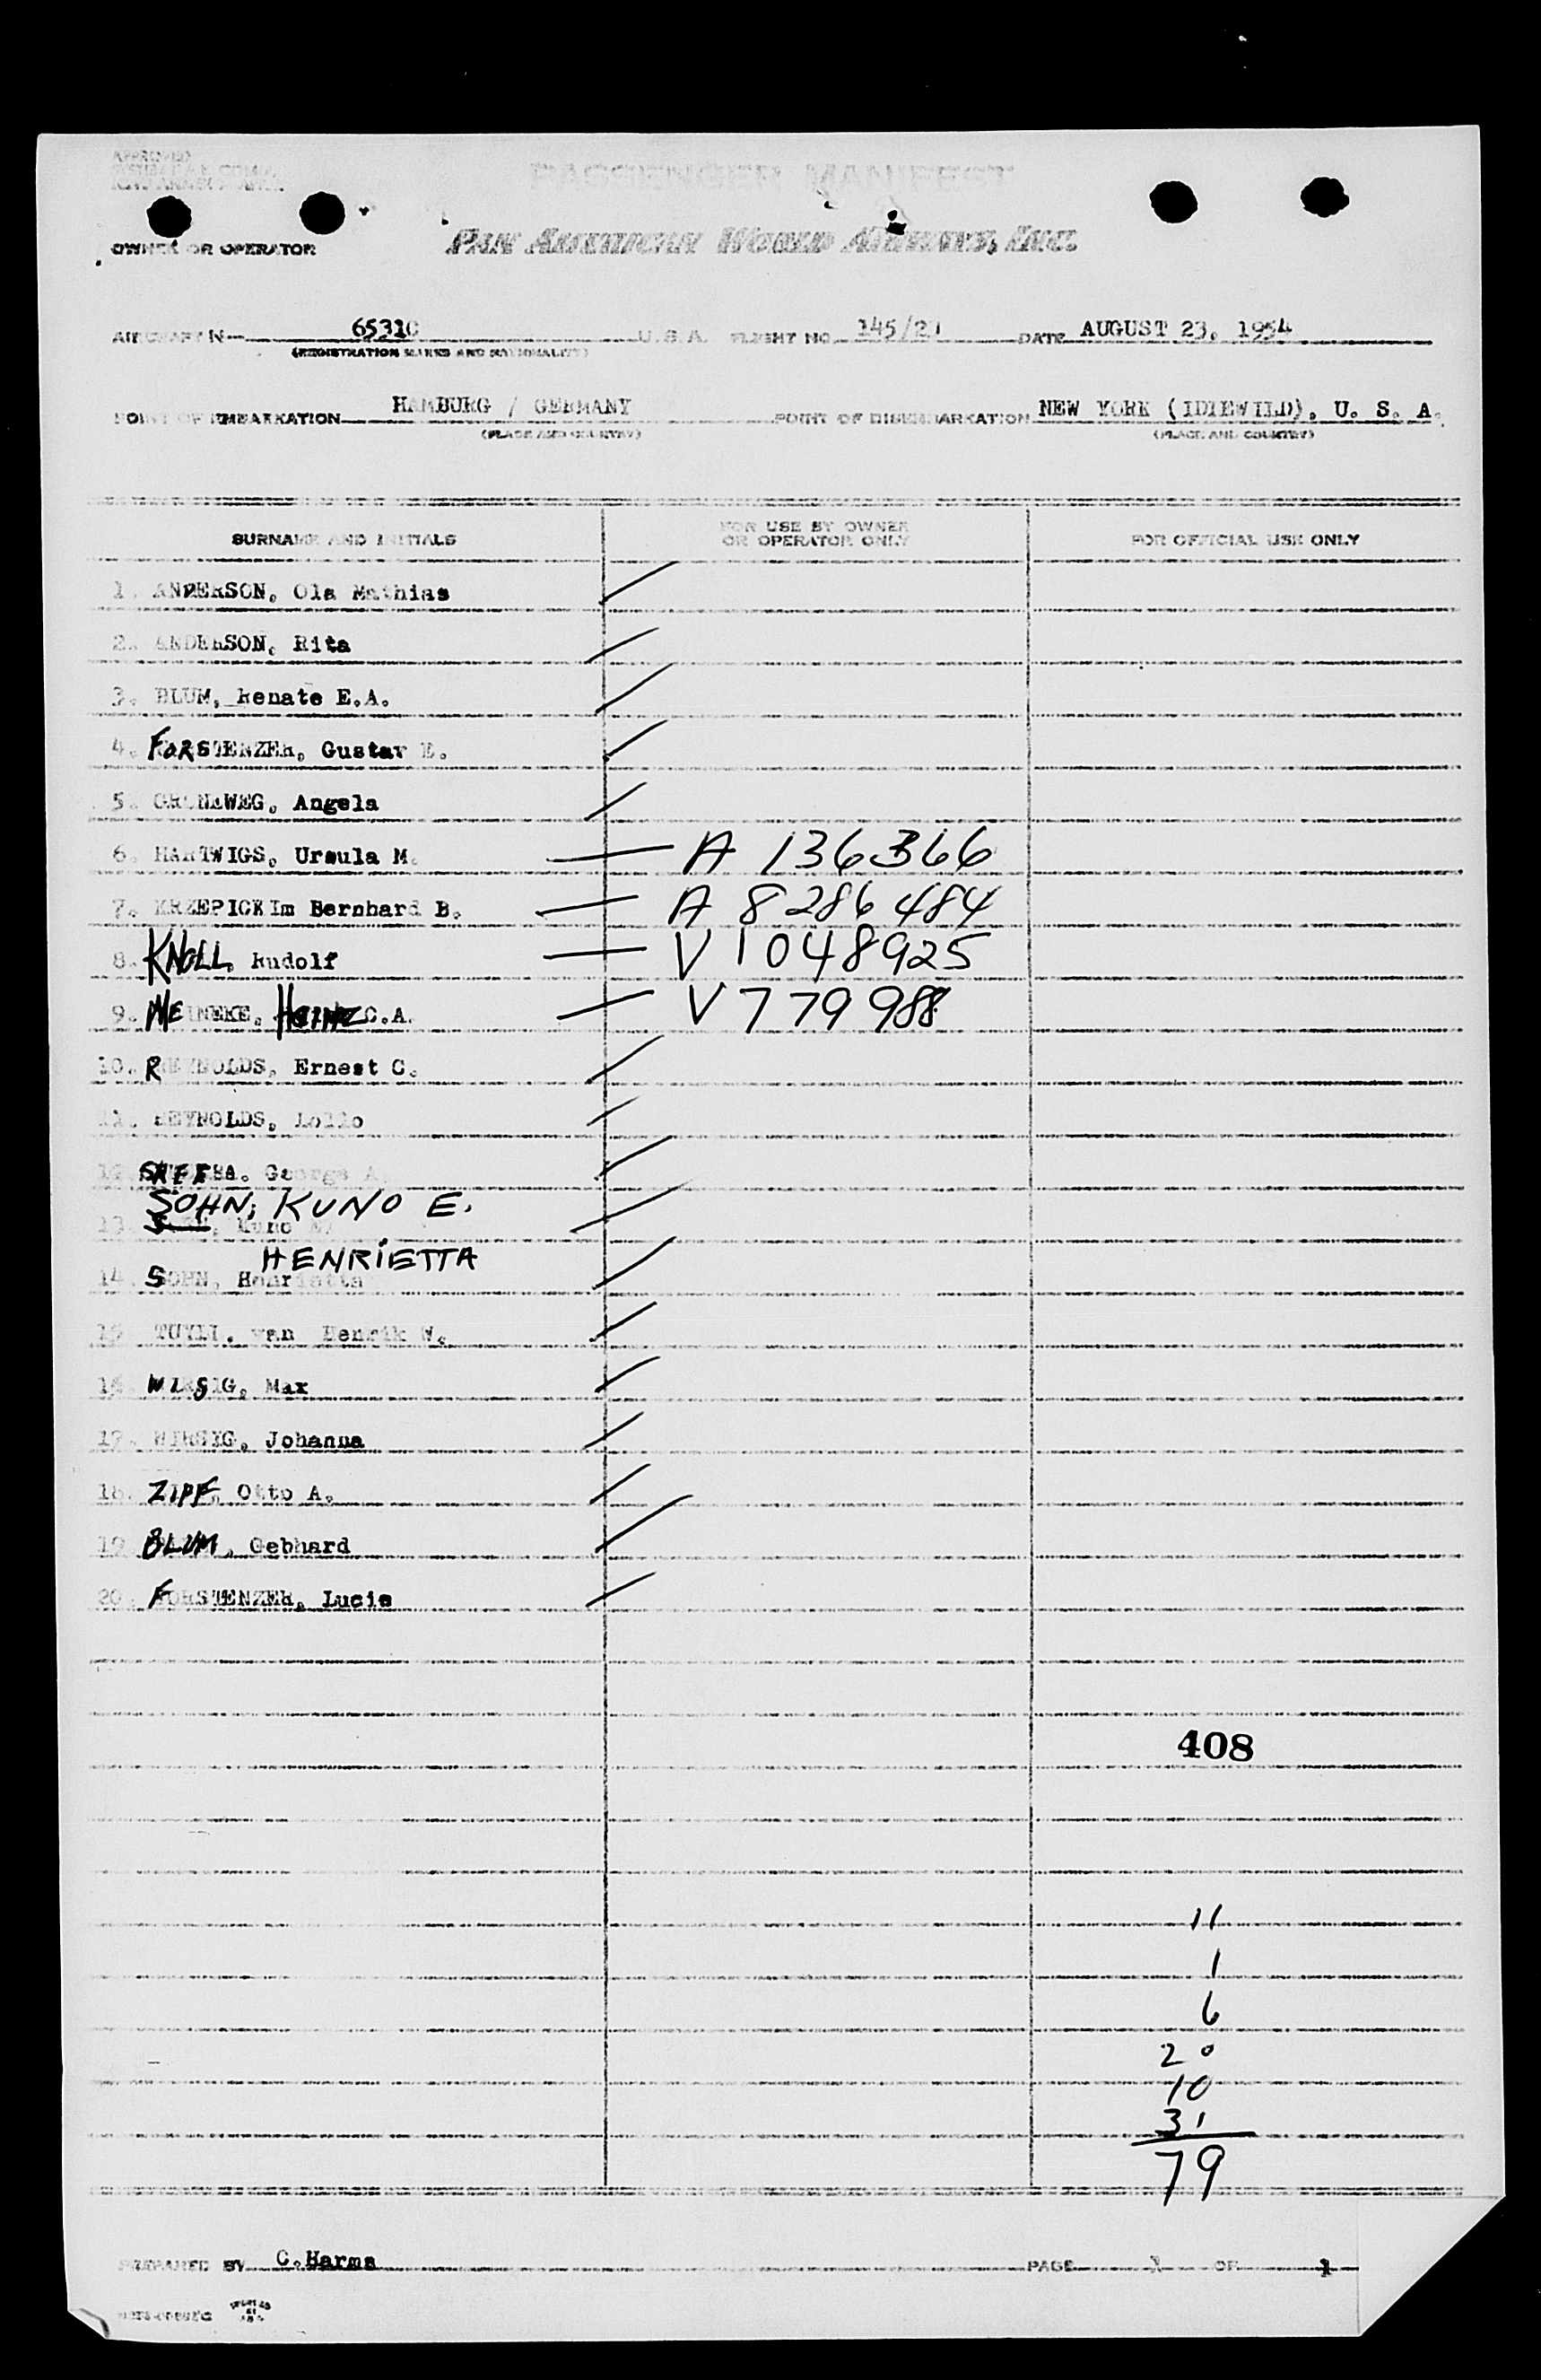 APPROVED
PASSENGER MANIFEST
OWNER OR OPERATOR PAN AMERICAN WORLD AIRWAYS, INC.
AIRCRAFT N- 65310 U.S.A. FLIGHT NO. 145/21 DATE AUGUST 23, 1954
(REGISTRATION MARKS AND NATIONALITY)
POINT OF EMBARKATION HAMBURG / GERMANY POINT OF DISEMBARKATION NEW YORK (IDLEWILD), U. S. A.
(PLACE AND COUNTRY) (PLACE AND COUNTRY)
SURNAME AND INITIALS FOR USE BY OWNER OR OPERATOR ONLY FOR OFFICIAL USE ONLY
1. ANDERSON, Ola Mathias
2. ANDERSON, Rita
3. BLUM, Renate E.A.
4. FORSTENZER, Gustav E.
5. GRONEWEG, Angela
6. HARTWIGS, Ursula M. A 136366
7. KRZEPICKIm Bernhard B. A 8286484
8. KNOLL, Rudolf V 1048925
9. MEINEKE, HEINZ C.A. V 779988
10. REYNOLDS, Ernest C.
11. REYNOLDS, Lollo
12. George A.
SOHN, KUNO E.
13. Kuno E.
HENRIETTA
14. SOHN, Henrietta
15. TUYLL, van Henrik W.
16. WIRSIG, Max
17. WIRSIG, Johanna
18. ZIPF, Otto A.
19. BLUM, Gebhard
20. FORSTENZER, Lucie
408
11
1
6
20
10
31
79
PREPARED BY C.Harms PAGE 1 OF 1